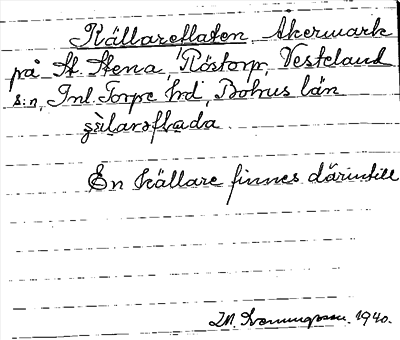 Källareflaten Åkermark
på St. Stena, Röstorp, Vesteland
s:n, Inl. Torpe hd, Bohus län
En källare finnes därintill
1940.